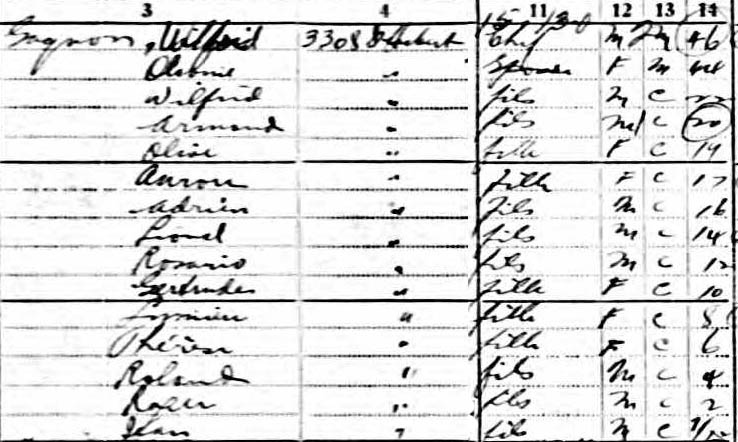 3 4 11 12 13 14
15 /30
Gagnon, Wilfrid 3308 Chef M M 46
" Spouse F M 44
Wilfrid " fils M C 22
Armand " fils M C 20
Olive " fille F C 19
Aurore " fille F C 17
Adrien " fils M C 16
Lionel " fils M C 14
Rosario " fils M C 12
Gertrudes " fille F C 10
" fille F C 8
Thérèse " fille F C 6
Roland " fils M C 4
Roger " fils M C 2
Jean " fils M C